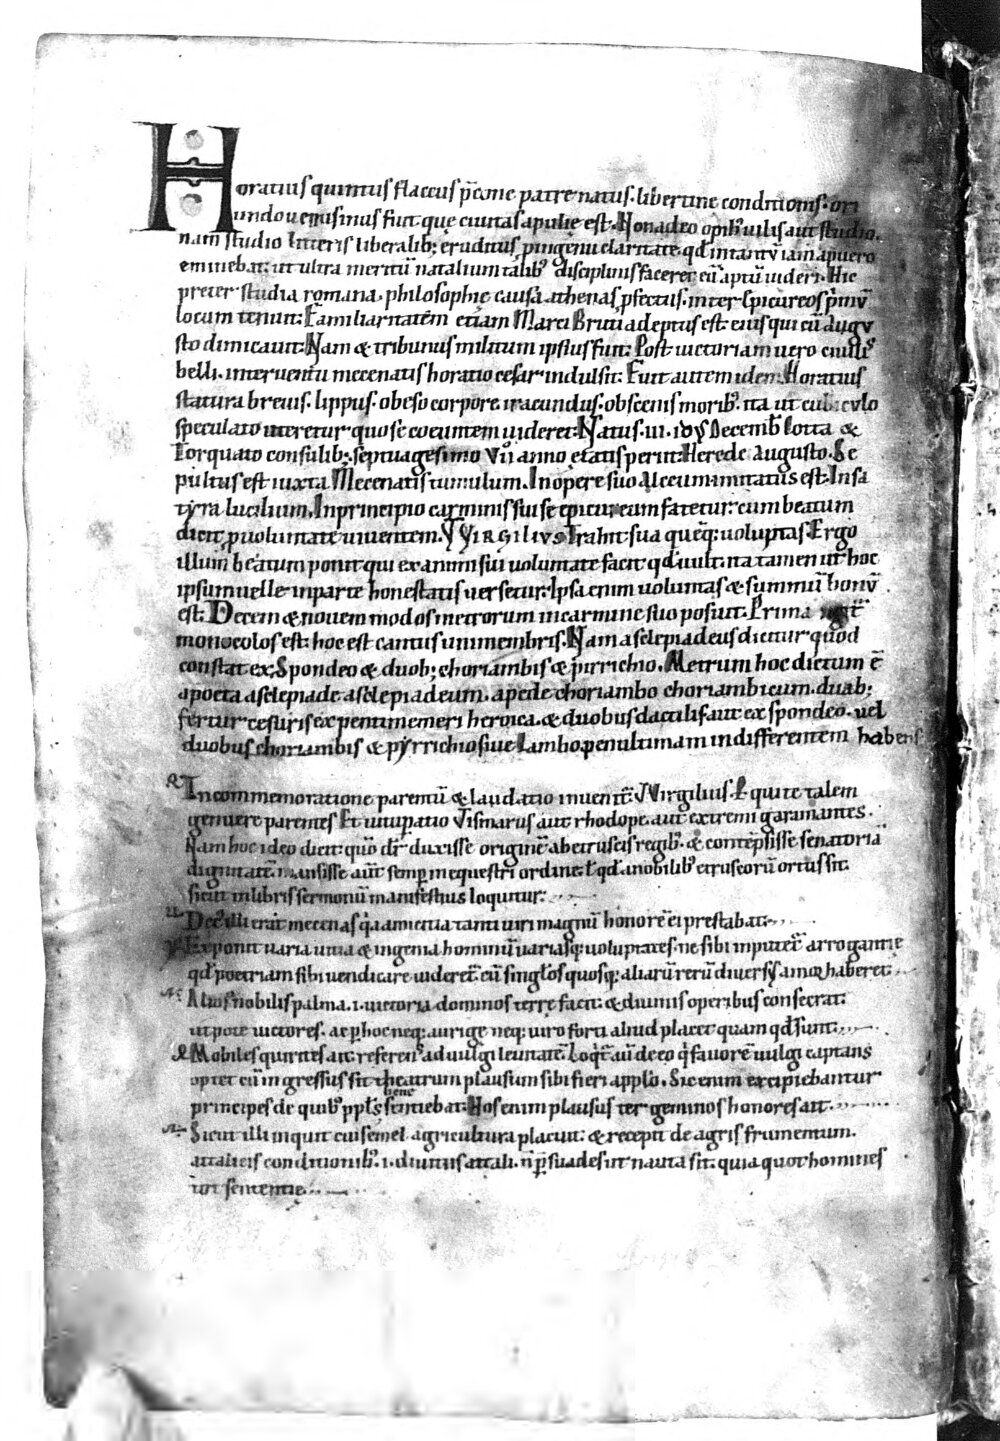 Horatius quintus flaccus p̄cone patre natus. libertine conditionis. ori
undo uenusinus fuit. que ciuitas apulie est. Non adeo opib; uilis aut studio.
nam studio litteris liberalib; eruditus, p̄ingenii claritate. qđ in tantū iam a puero
eminebat: ut ultra meritū natalium talib; disciplinis faceret eū aptū uideri. Hic
preter studia romana, philosophię causa athenas p̱fectus. inter epicureos p̍mū
locum tenuit: Familiaritatem etiam Marci Bruti adeptus est. eius qui cū augu
sto dimicauit: Nam & tribunus militum ipsius fuit: Post uictoriam uero ciuilis
belli. interuentu mecenatis horatio cesar indulsit: Fuit autem idem Horatius
statura breuis. lippus. obeso corpore. iracundus. obscenis morib;. ita ut cubiculo
speculato uteretur. quo se coeuntem uideret: Natus. ui. idus Decemb̄ Cotta &
Torquato consulib; septuagesimo vii anno ętatis periit. Herede Augusto. Se
pultus est iuxta Mecenatis tumulum. In opere suo Alceum imitatus est. In sa
tyra lucilium. In principio carminis sui se epicureum fatetur. cum beatum
dicit p̱ uoluntate uiuentem. VIRGILIVS Trahit sua quęq; uoluptas. Ergo
illum beatum ponit qui ex animi sui uoluntate facit qđ uult. ita tamen ut hoc
ipsum uelle in parte honestatis uersetur. Ipsa enim uoluntas & summū bonū
est: Decem & nouem modos metrorum in carmine suo posuit. Prima
monocolos est: hoc est cantus unimembris. Nam asclepiadeus dicitur quod
constat ex Spondeo & duob; choriambis & pirrichio. Metrum hoc dictum ē
a poeta asclepiade asclepiadeum. a pede choriambo choriambicum. duab;
fertur cesuris ex pentimemeri heroica. & duobus dactilis aut ex spondeo. uel
duobus choriambis & pyrrichio siue Iambo penultimam indifferentem habens
In commemoratione parentū & laudatio inuenit̄. Virgilius. Qui te talem
genuere parentes Et uitup̱atio Ismarus aut rhodope. aut extremi garamantes.
Nam hoc ideo dicit: quō dr̄ duxisse originē ab etruscis regib;. & contēpsisse senatoriā
dignitatē mansisse aūt semp̱ in equestri ordine. qđ a nobilib; etruscorū ortus sit.
sicut in libris sermonū manifestius loquitur:
Dec; illi erat mecenas q̍a amicitia tanti uiri magnū honorē ei prestabat.
Exponit uaria uita & ingenia hominū uariasq; uoluptates. ne sibi imputet̄ arrogantie
qđ poetriam sibi uendicare uideret̄. cū singl̄os quosq; aliarū rerū diuersus amor haberet.
Alios nobilis palma. i. uictoria dominos terrę facit: & diuinis operibus consecrat:
utpote uictores. ac p̱ hoc neq; aurigę neq; uiro forti aliud placet quam qđ sunt.
Mobiles quirites ait. referens ad uulgi leuitatē. Loq̍t̄ aū de eo q̍ fauorē uulgi captans
optet cū ingressus sit theatrum plausum sibi fieri a pplo. Sic enim excipiebantur
principes de quib; ppl̄s bene sentiebat: Hos enim plausus ter geminos honores ait.
Sicut illi inquit cui semel agricultura placuit: & recepit de agris frumentum.
attalicis conditionib;. i. diuitiis attali. n̄ p̱suades ut nauta sit: quia quot homines
tot sententię.